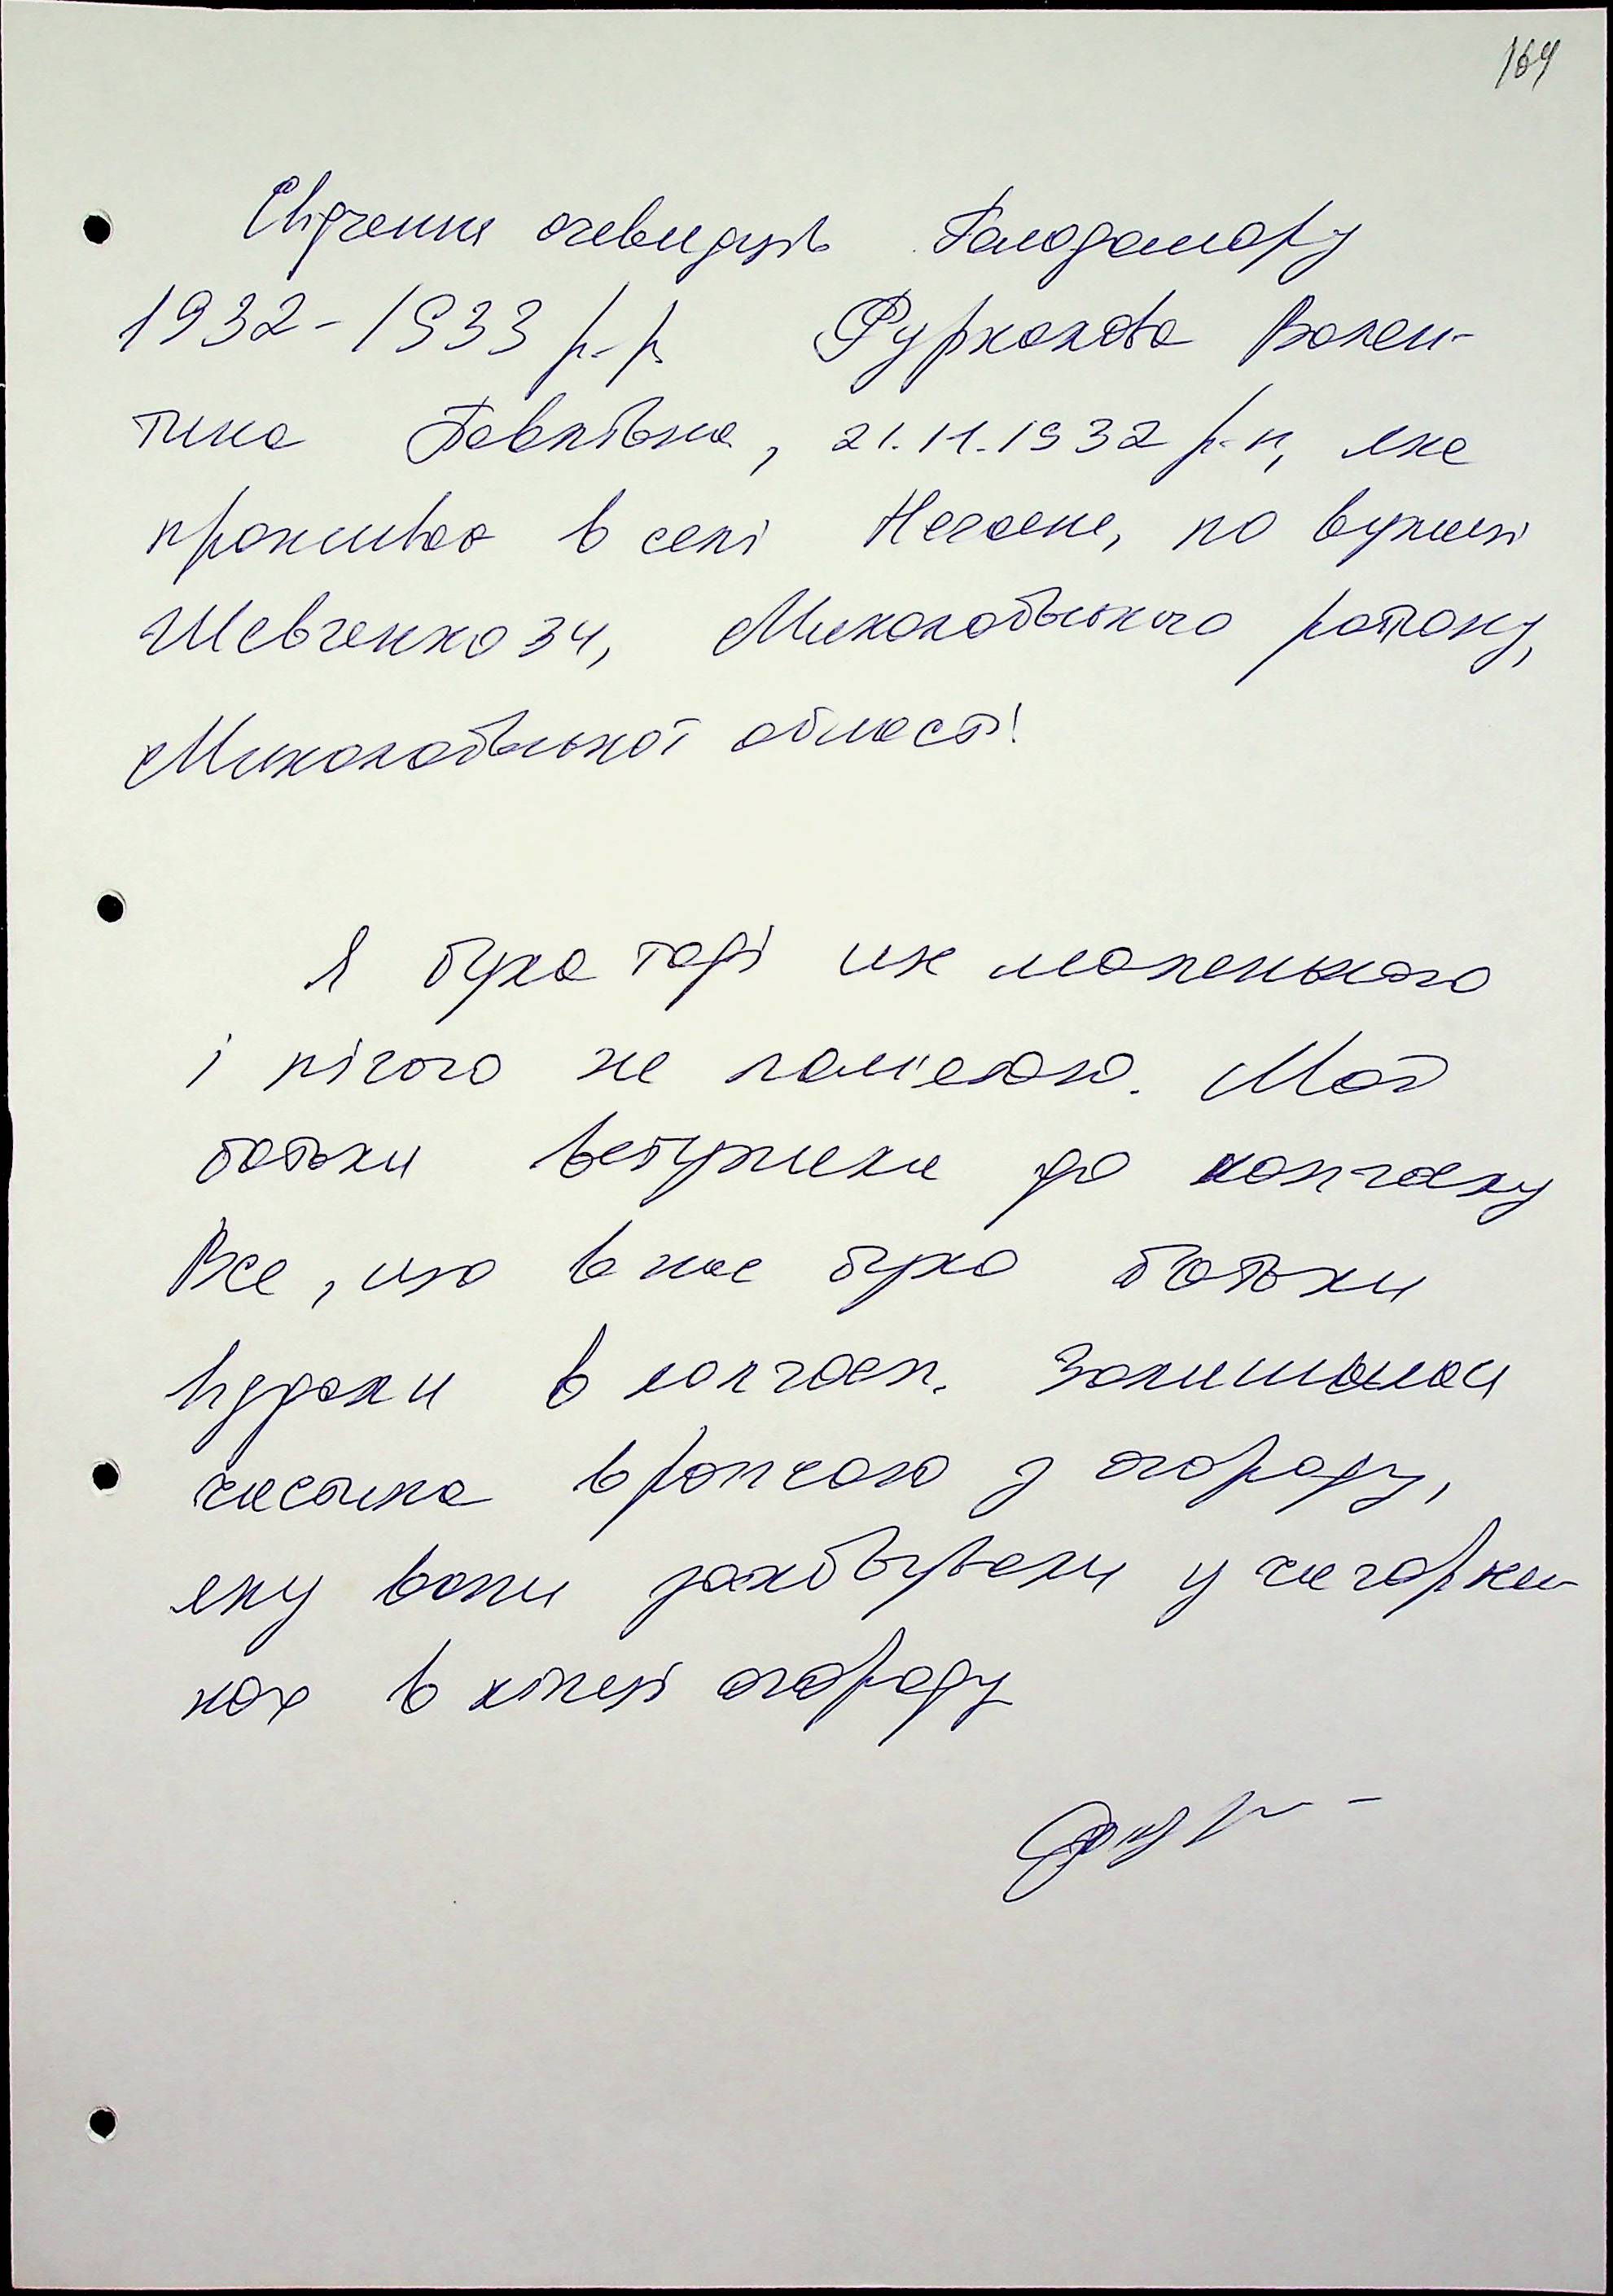 169
Свідчення очевидців Голодомору
1932-1933 р.р. Фурманова Вален-
тина Павлівна, 21.11.1932 р.н, яка
проживає в селі Нечаяне, по вулиці
Шевченко 34, Миколаївського району,
Миколаївської області
Я була тоді ще маленькою
і нічого не пам'ятаю. Мої
батьки вступили до колгоспу
Все, що в нас було батьки
віддали в колгосп. Залишалася
частина врожаю з огороду,
яку вони заховували у
в кінці огороду